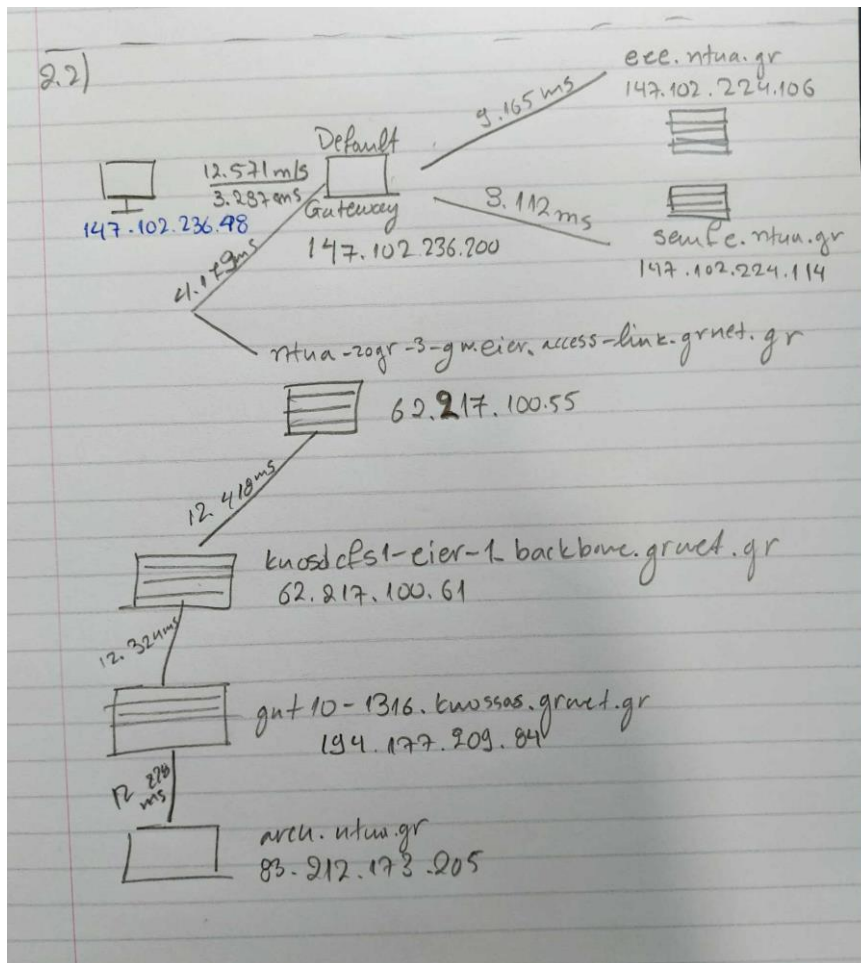 2.2)
ece.ntua.gr
147.102.224.106
9.165 ms
Default
12.571 m/s
3.287 ms
Gateway
147.102.236.200
147.102.236.98
3.112 ms
semfe.ntua.gr
147.102.224.114
4.179ms
ntua-zogr-3-gw.eier.access-link.grnet.gr
62.217.100.55
12.418ms
knosdcfs1-eier-1 backbone.grnet.gr
62.217.100.61
12.324ms
gnt10-1316.knossas.grnet.gr
194.177.209.84
12.278
ms
arch.ntua.gr
83.212.173.205